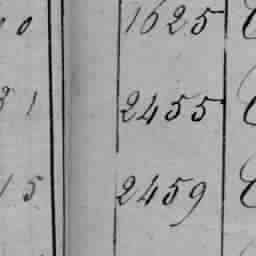 0 1625
31 2455
15 2459